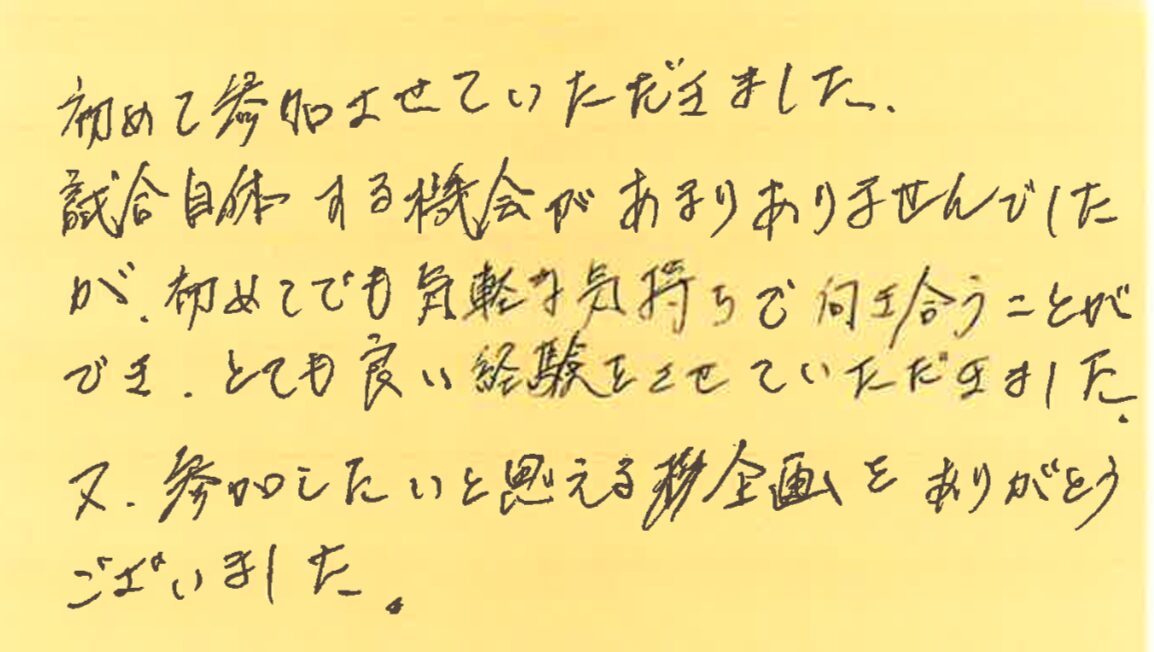 初めて参加させていただきました、
試合自体する機会があまりありませんでした
が、初めてでも気軽な気持ちで向き合うことが
でき、とても良い経験をさせていただきました。
又、参加したいと思える企画をありがとう
ございました。